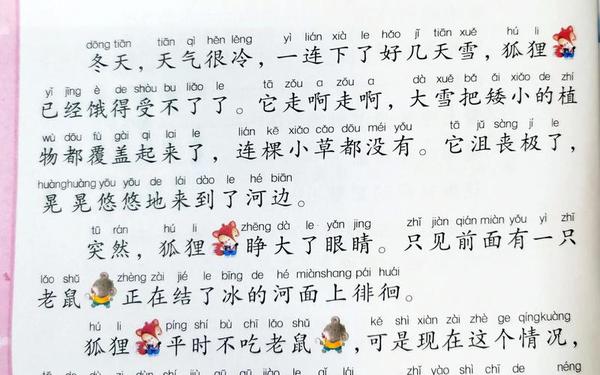 dōng tiān tiān qì hěn lěng yì lián xià le hǎo jǐ tiān xuě hú li
冬天，天气很冷，一连下了好几天雪，狐狸
yǐ jīng è de shòu bu liǎo le tā zǒu a zǒu a dà xuě bǎ ǎi xiǎo de zhí
已经饿得受不了了。它走啊走啊，大雪把矮小的植
wù dōu fù gài qi lai le lián kē xiǎo cǎo dōu méi yǒu tā jǔ sàng jí le
物都覆盖起来了，连棵小草都没有。它沮丧极了，
huànghuàng yōu yōu de lái dào le hé biān
晃晃悠悠地来到了河边。
tū rán hú li zhēng dà le yǎn jing zhǐ jiàn qián miàn yǒu yì zhī
突然，狐狸睁大了眼睛。只见前面有一只
lǎo shǔ zhèng zài jié le bīng de hé miànshang pái huái
老鼠正在结了冰的河面上徘徊。
hú li píng shí bù chī lǎo shǔ kě shì xiàn zài zhè ge qíngkuàng
狐狸平时不吃老鼠，可是现在这个情况，